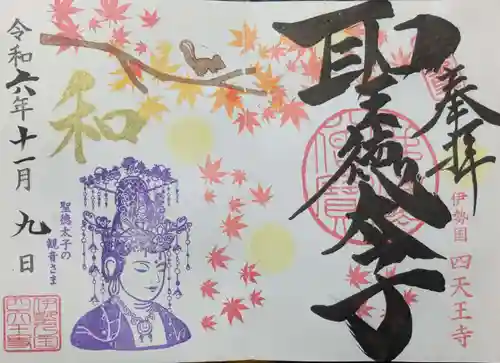 奉拝
聖徳太子
伊勢国 四天王寺
和
聖徳太子の
観音さま
令和六年十一月九日